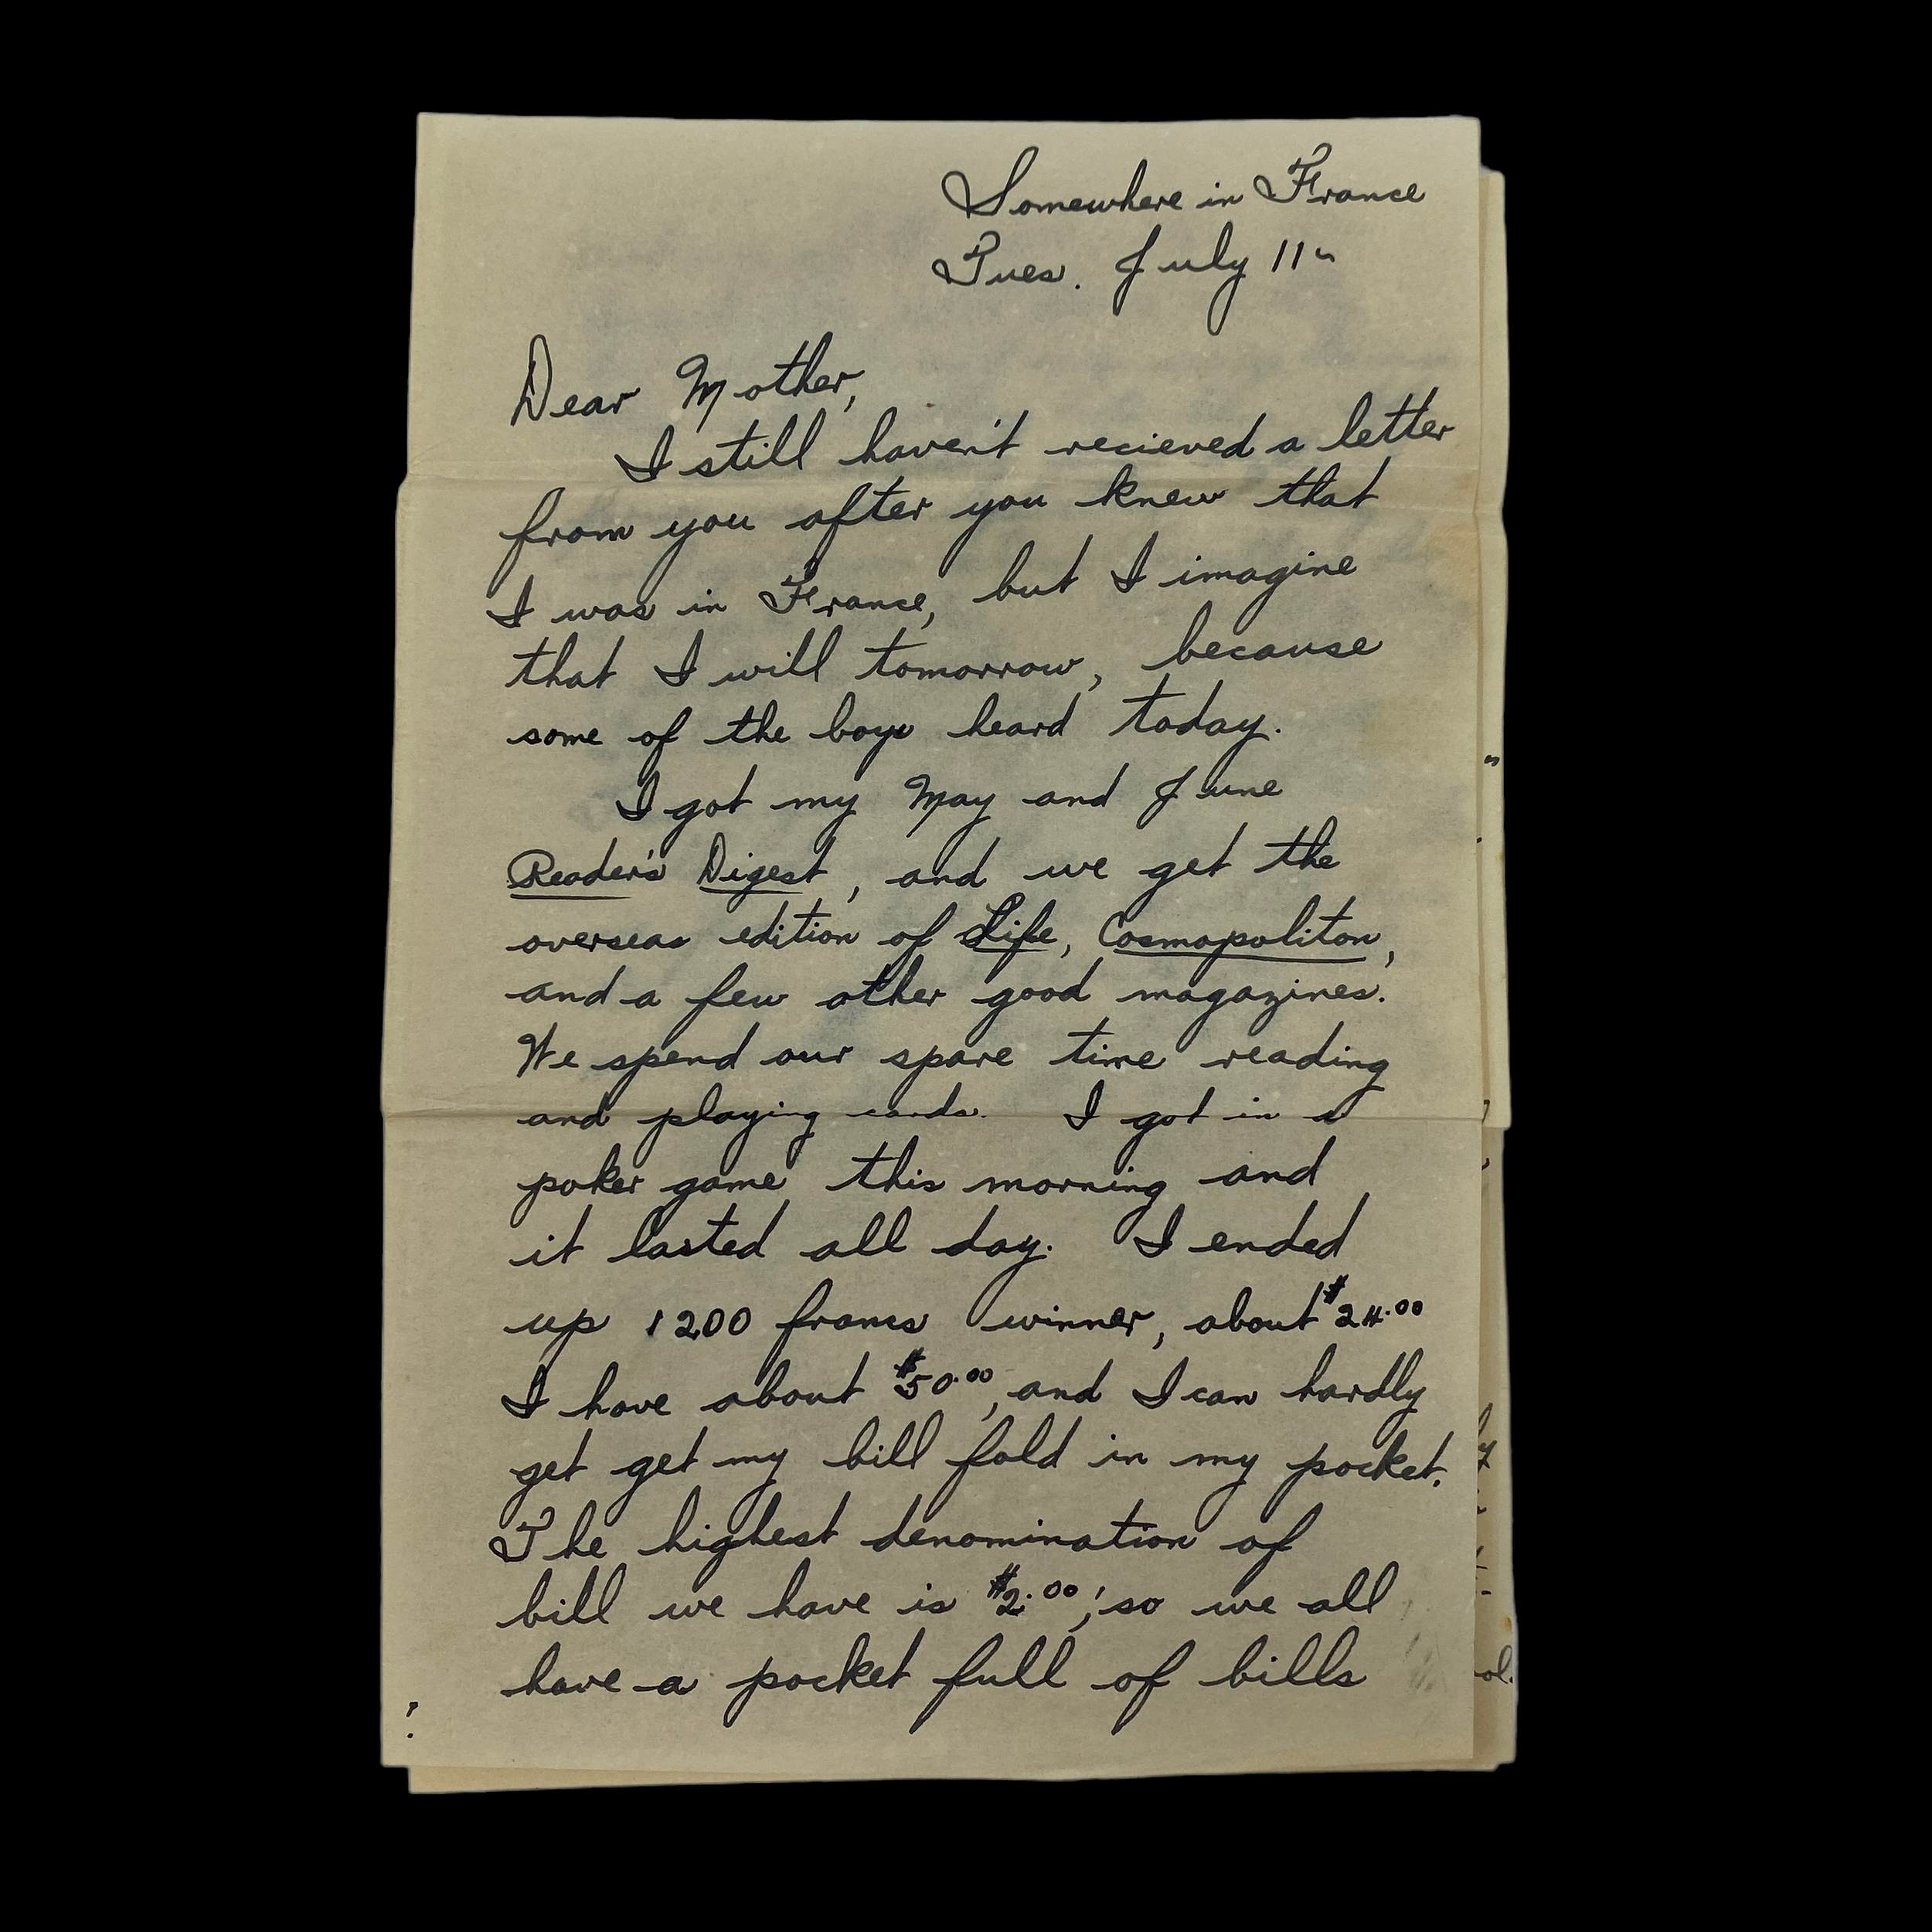 Somewhere in France
Tues. July 11
Dear Mother,
I still haven't recieved a letter
from you after you knew that
I was in France, but I imagine
that I will tomorrow, because
some of the boys heard today.
I got my May and June
Reader's Digest, and we get the
overseas edition of Life, Cosmopoliton,
and a few other good magazines.
We spend our spare time reading
and playing cards. I got in a
poker game this morning and
it lasted all day. I ended
up 1200 francs winner, about $24.00
I have about $50.00, and I can hardly
get get my bill fold in my pocket.
The highest denomination of
bill we have is $2.00, so we all
have a pocket full of bills